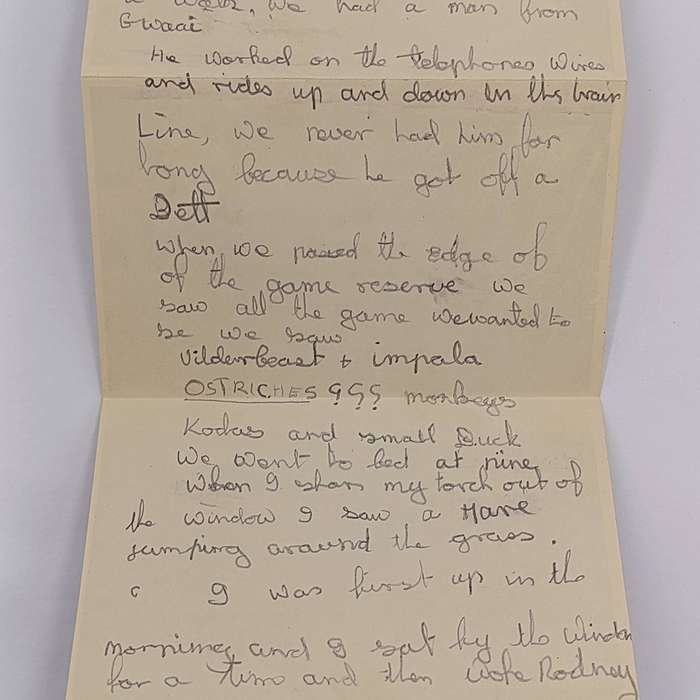 we had a man from
Gwaai
He worked on the telephones wires
and rides up and down in ths train
Line, we never had him for
long because he got off a
Dett
when we passed the edge of
of the game reserve we
saw all the game we wanted to
se we saw
Vilderbeast + impala
OSTRICHES monkeys
Kodas and small Duck
We went to bed at nine
When I shon my torch out of
the window I saw a Hare
jumping around the grass.
c I was first up in the
morning and I sat by the window
for a time and then woke Rodney